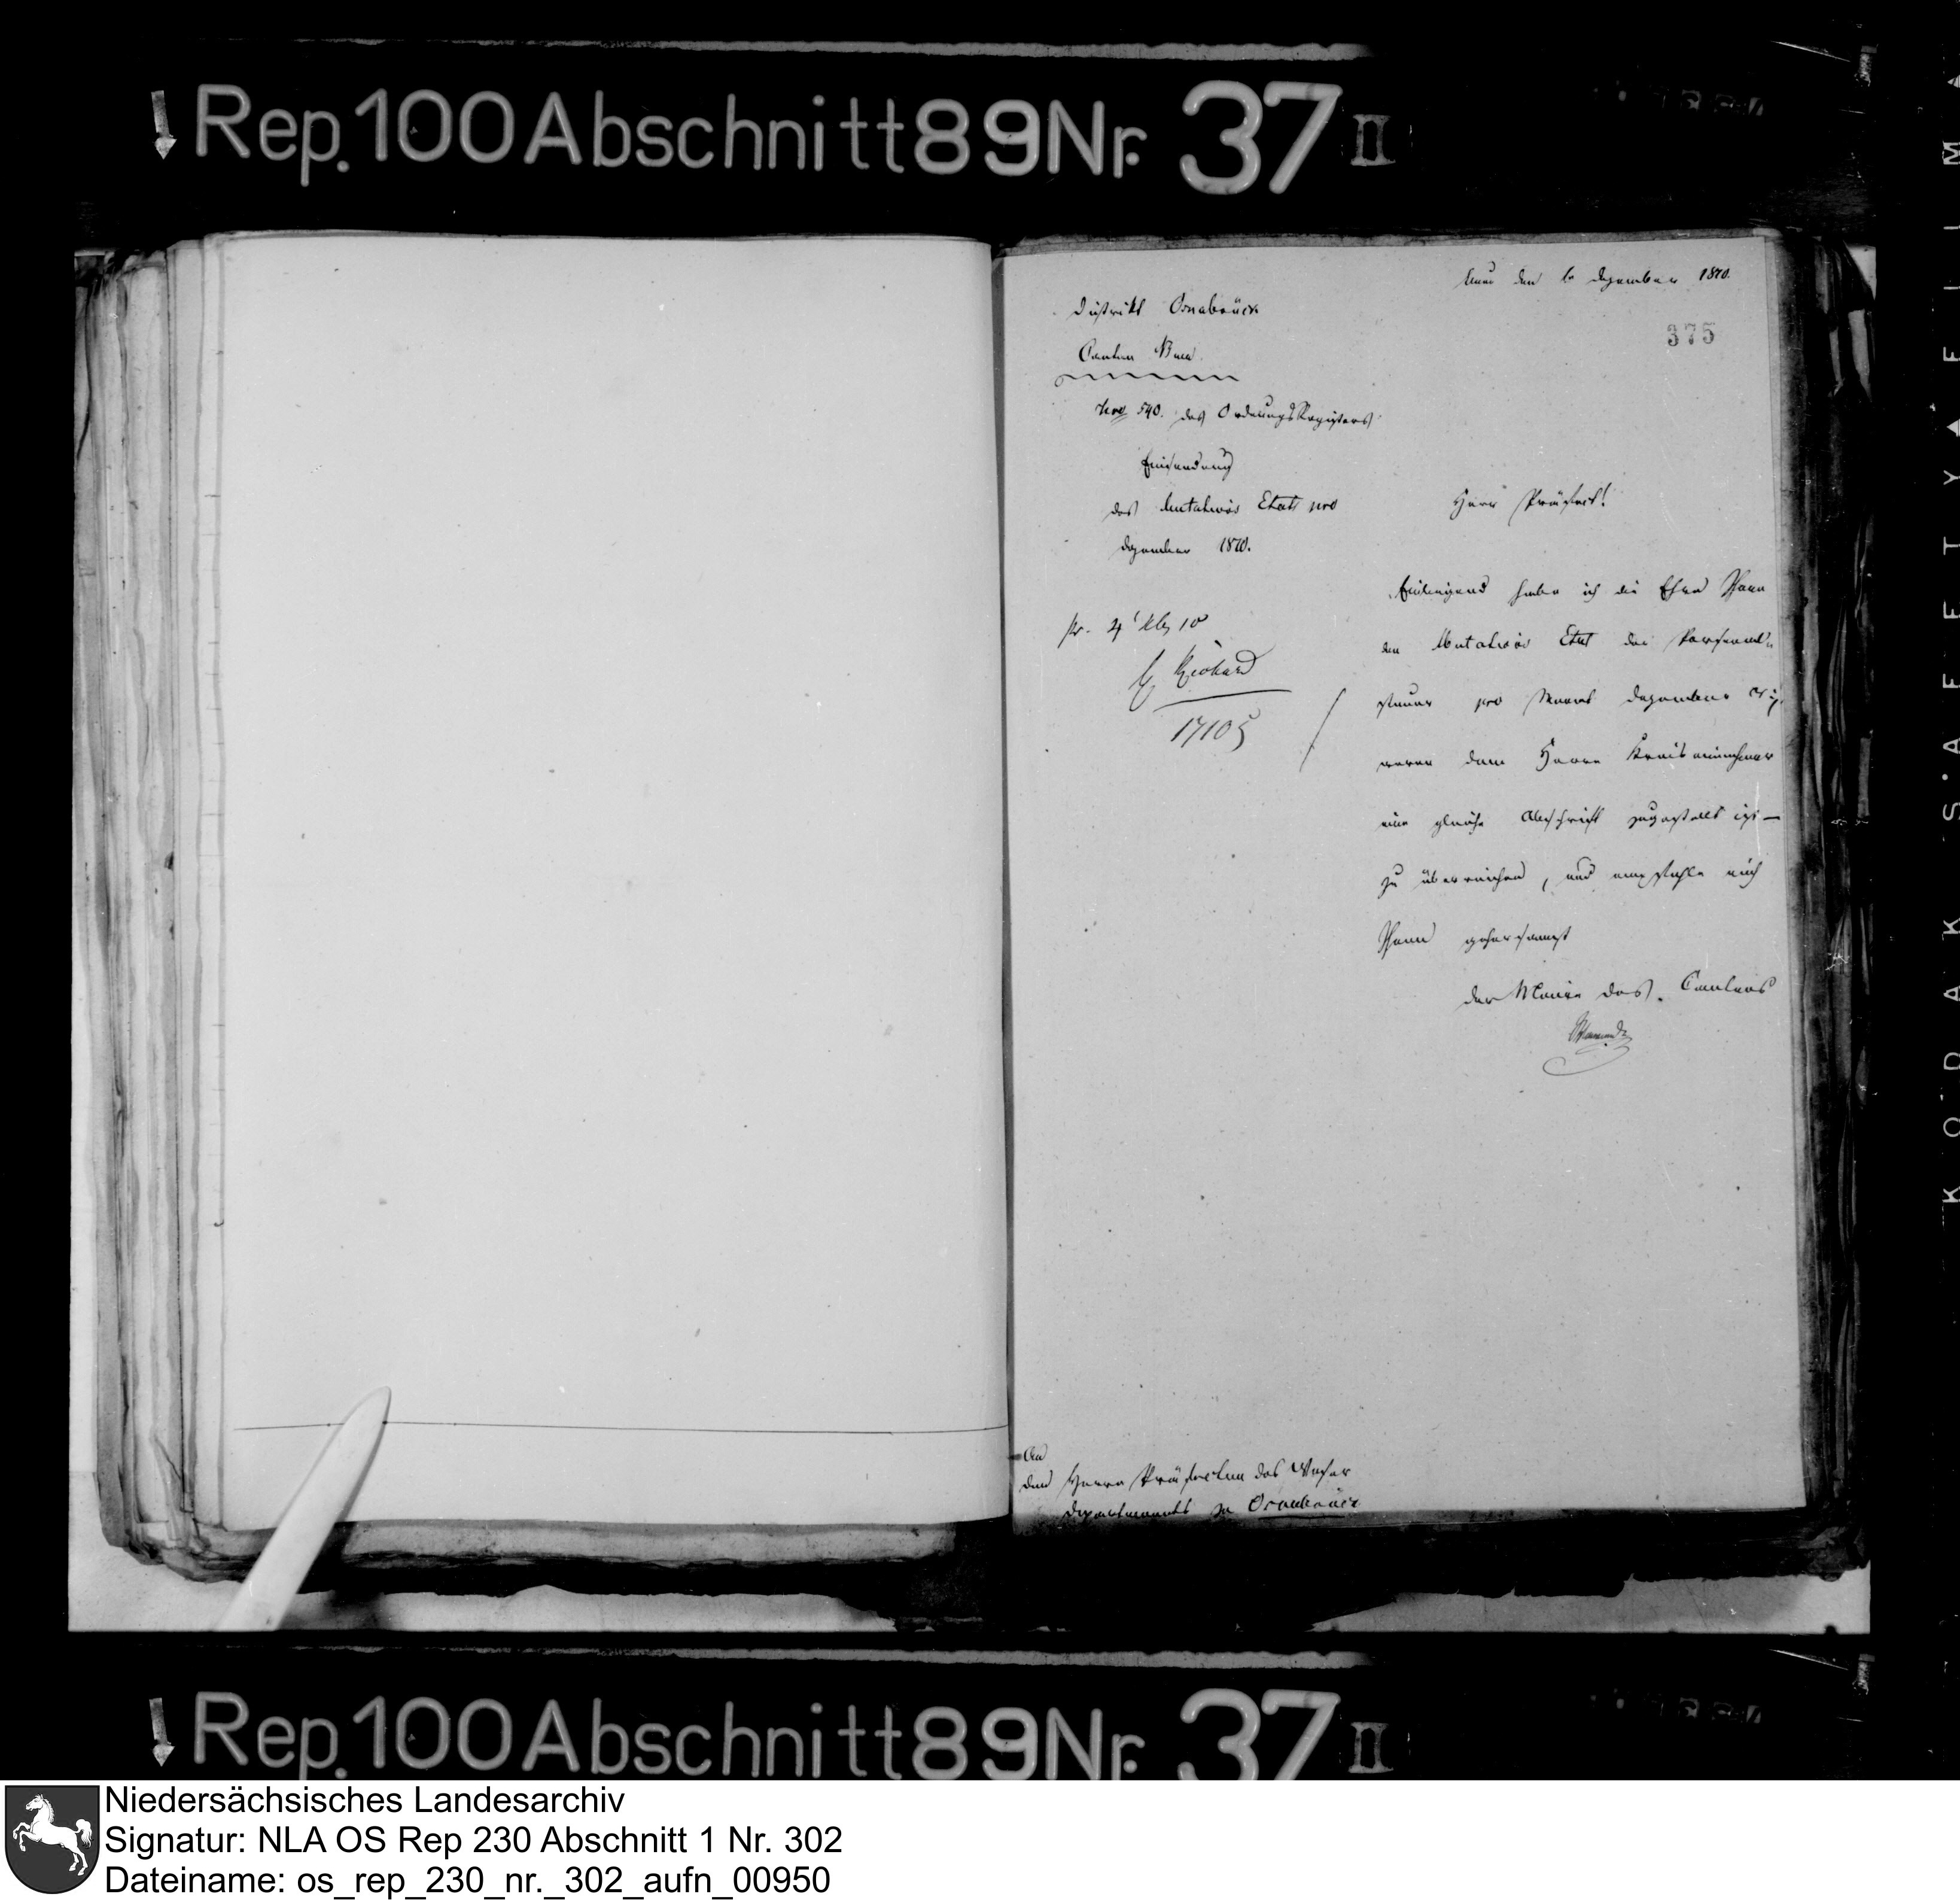 Rep. 100 Abschnitt 89 Nr. 37 II
den 1n Dezember 1810.
375
District Osnabrück
Canton Buer
Nro 540. des OrdnungsRegisters
Einsendung
des Mutations Etats pro
Dezember 1810.
Herr Präfect!
pr. 4t Xbr 10
17105
Einliegend habe ich die Ehre Ihnen
den Mutations Etat der Personal-
steuer pro Monat Dezember
wovon dem Herrn Kreiseinnehmer
eine gleiche Abschrift zugestellt ist —
zu überreichen, und empfehle mich
Ihnen gehorsamst
der Maire des Cantons
An
den Herrn Präfecten des Weser
Departements zu Osnabrück
KODAK SAFETY FILM
Rep. 100 Abschnitt 89 Nr. 37 II
Niedersächsisches Landesarchiv
Signatur: NLA OS Rep 230 Abschnitt 1 Nr. 302
Dateiname: os_rep_230_nr._302_aufn_00950